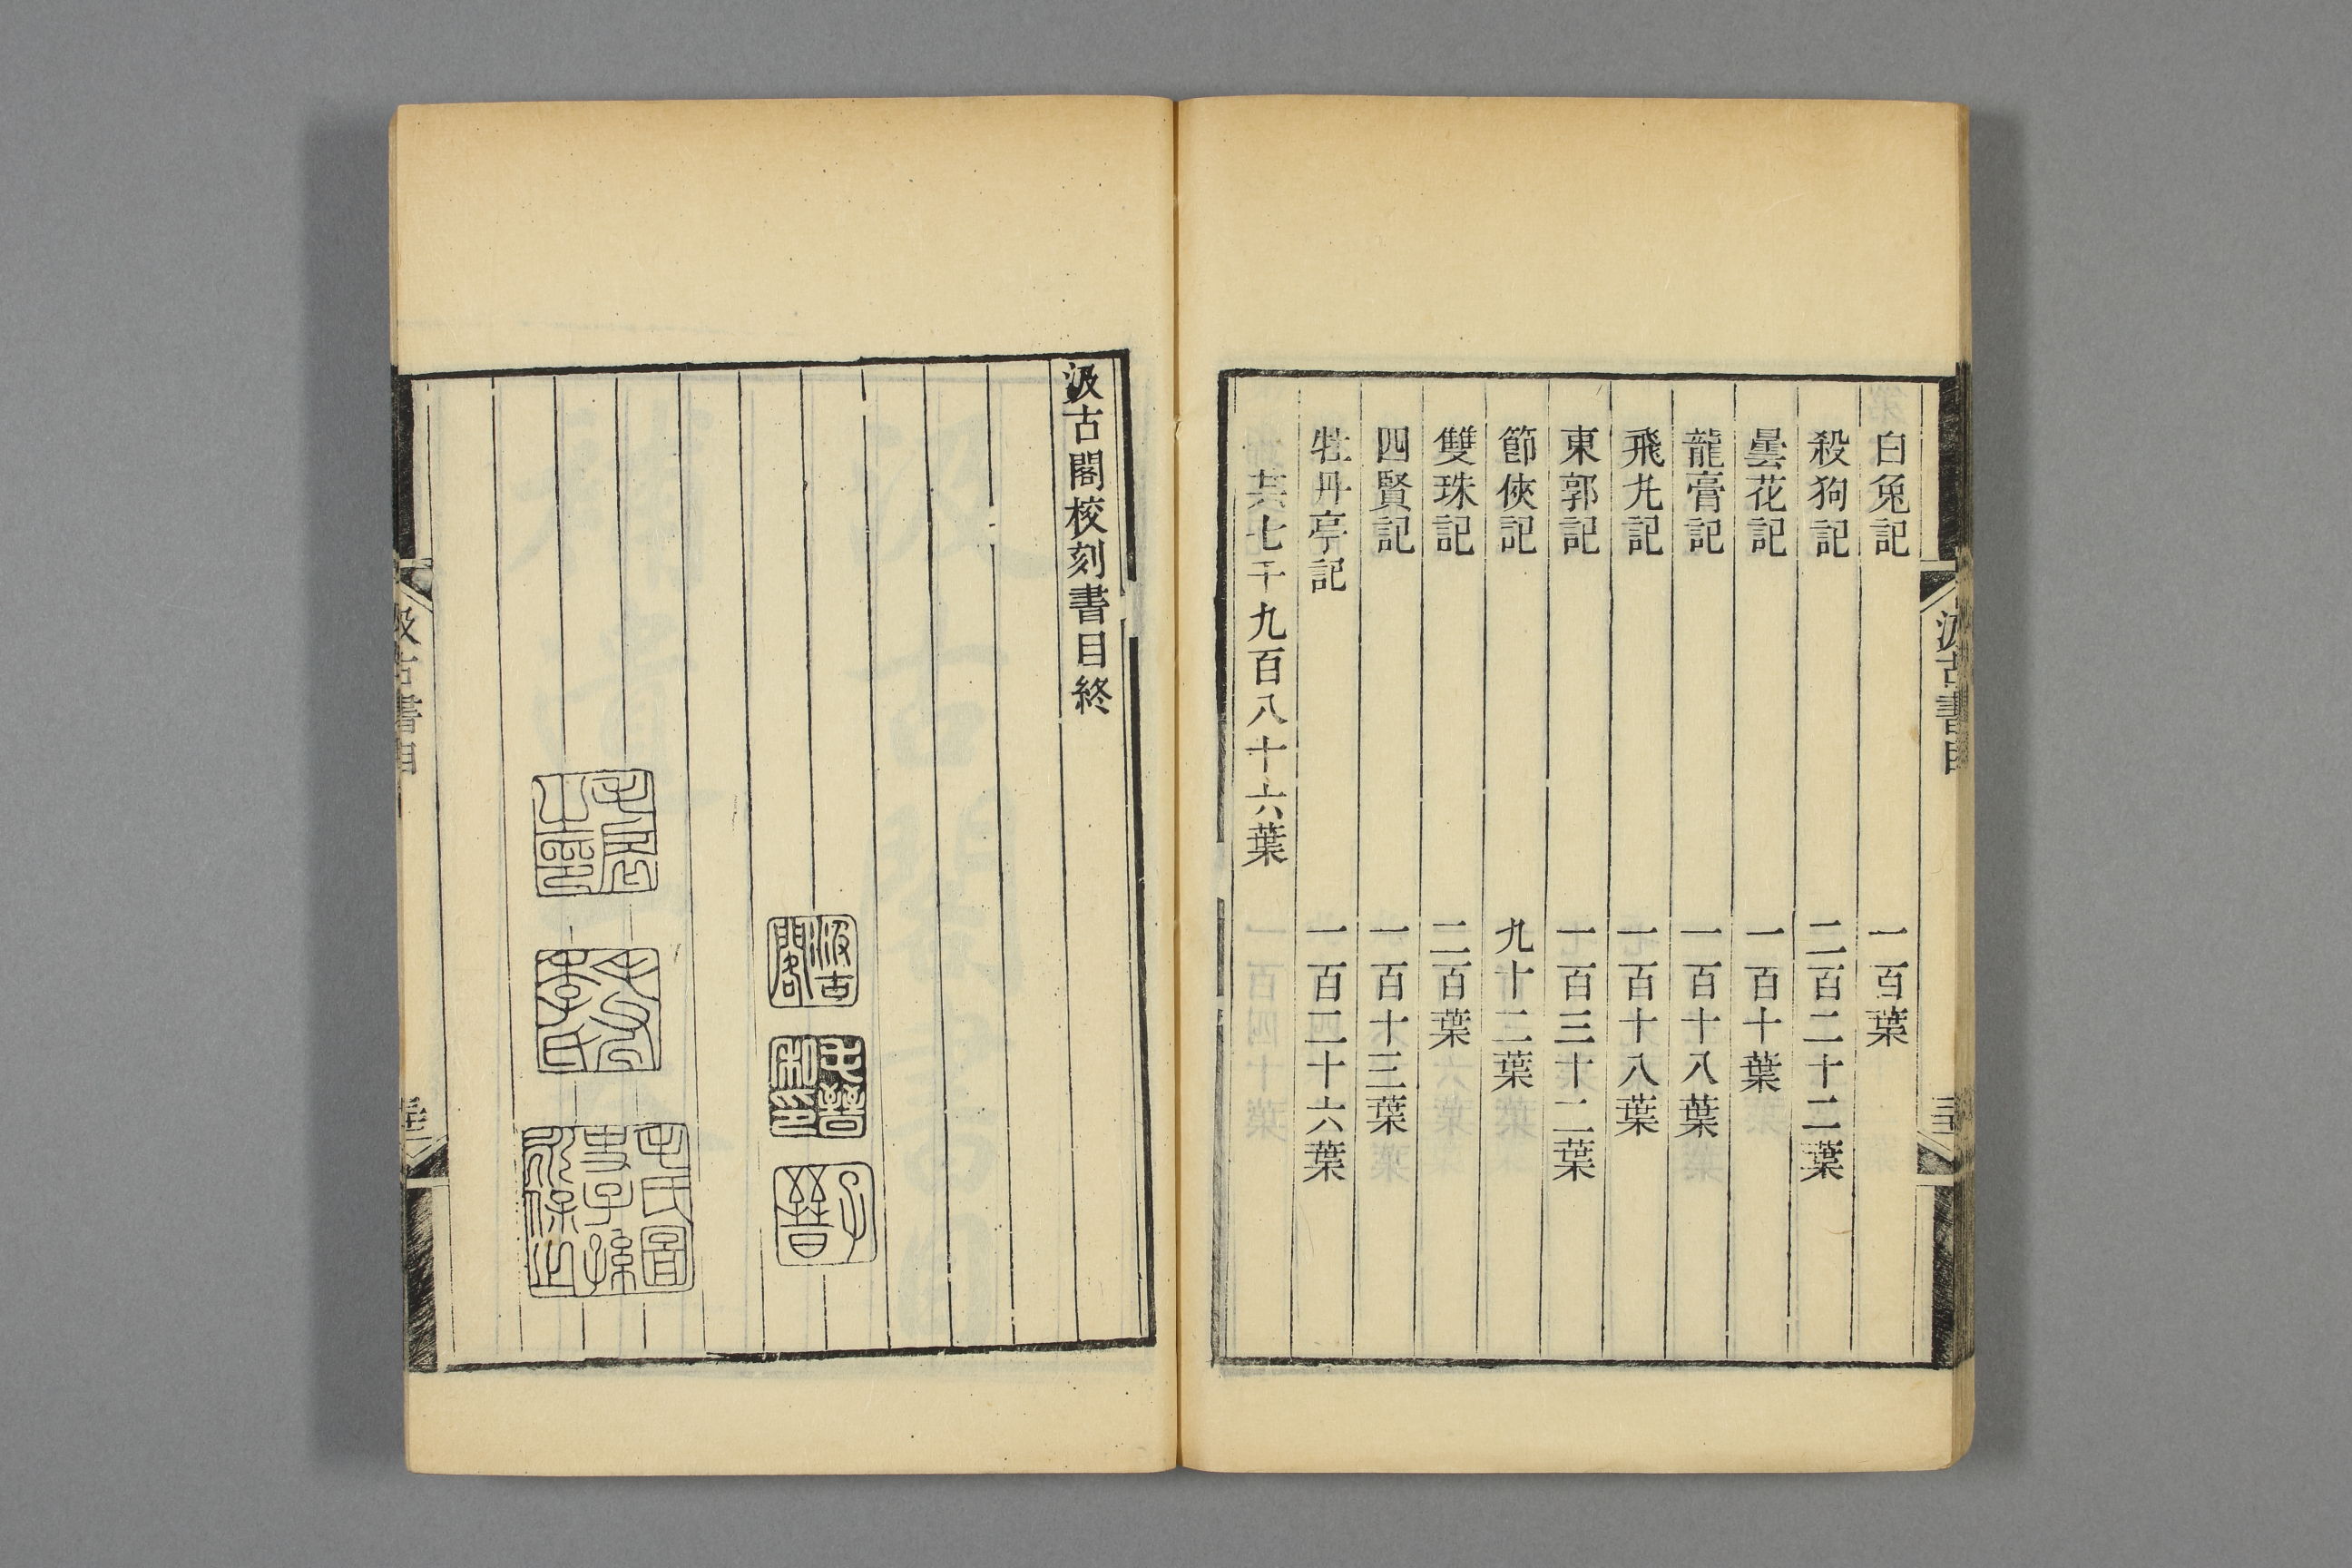 白兔記 一百葉
殺狗記 二百二十二葉
曇花記 一百十葉
龍膏記 一百十八葉
飛丸記 一百十八葉
東郭記 一百三十二葉
節俠記 九十二葉
雙珠記 二百葉
四賢記 一百十三葉
牡丹亭記 一百二十六葉
共七千九百八十六葉
汲古書目
汲古閣校刻書目終
汲古閣
毛晉私印
子晉
毛氏圖史子孫永保之
汲古書目